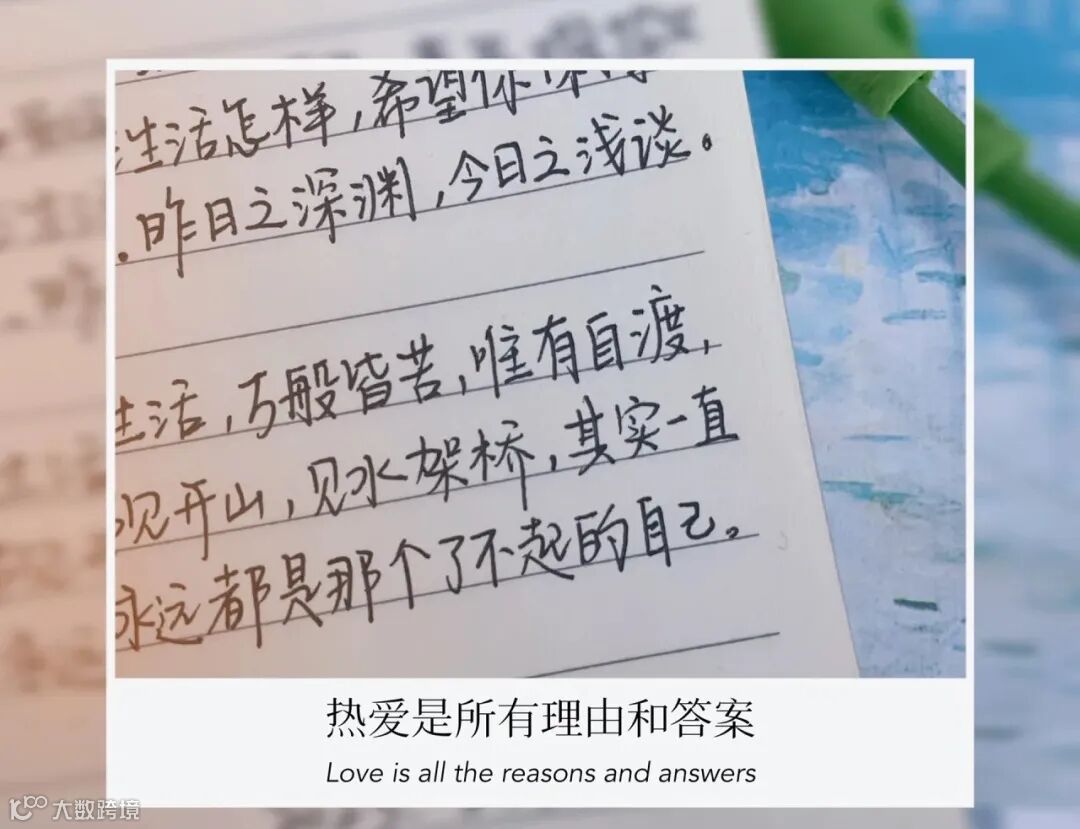 生活怎样,希望你
.昨日之深渊,今日之浅谈。
生活,万般皆苦,唯有自渡,
见开山,见水架桥,其实一直
永远都是那个了不起的自己。
热爱是所有理由和答案
Love is all the reasons and answers
大数跨境